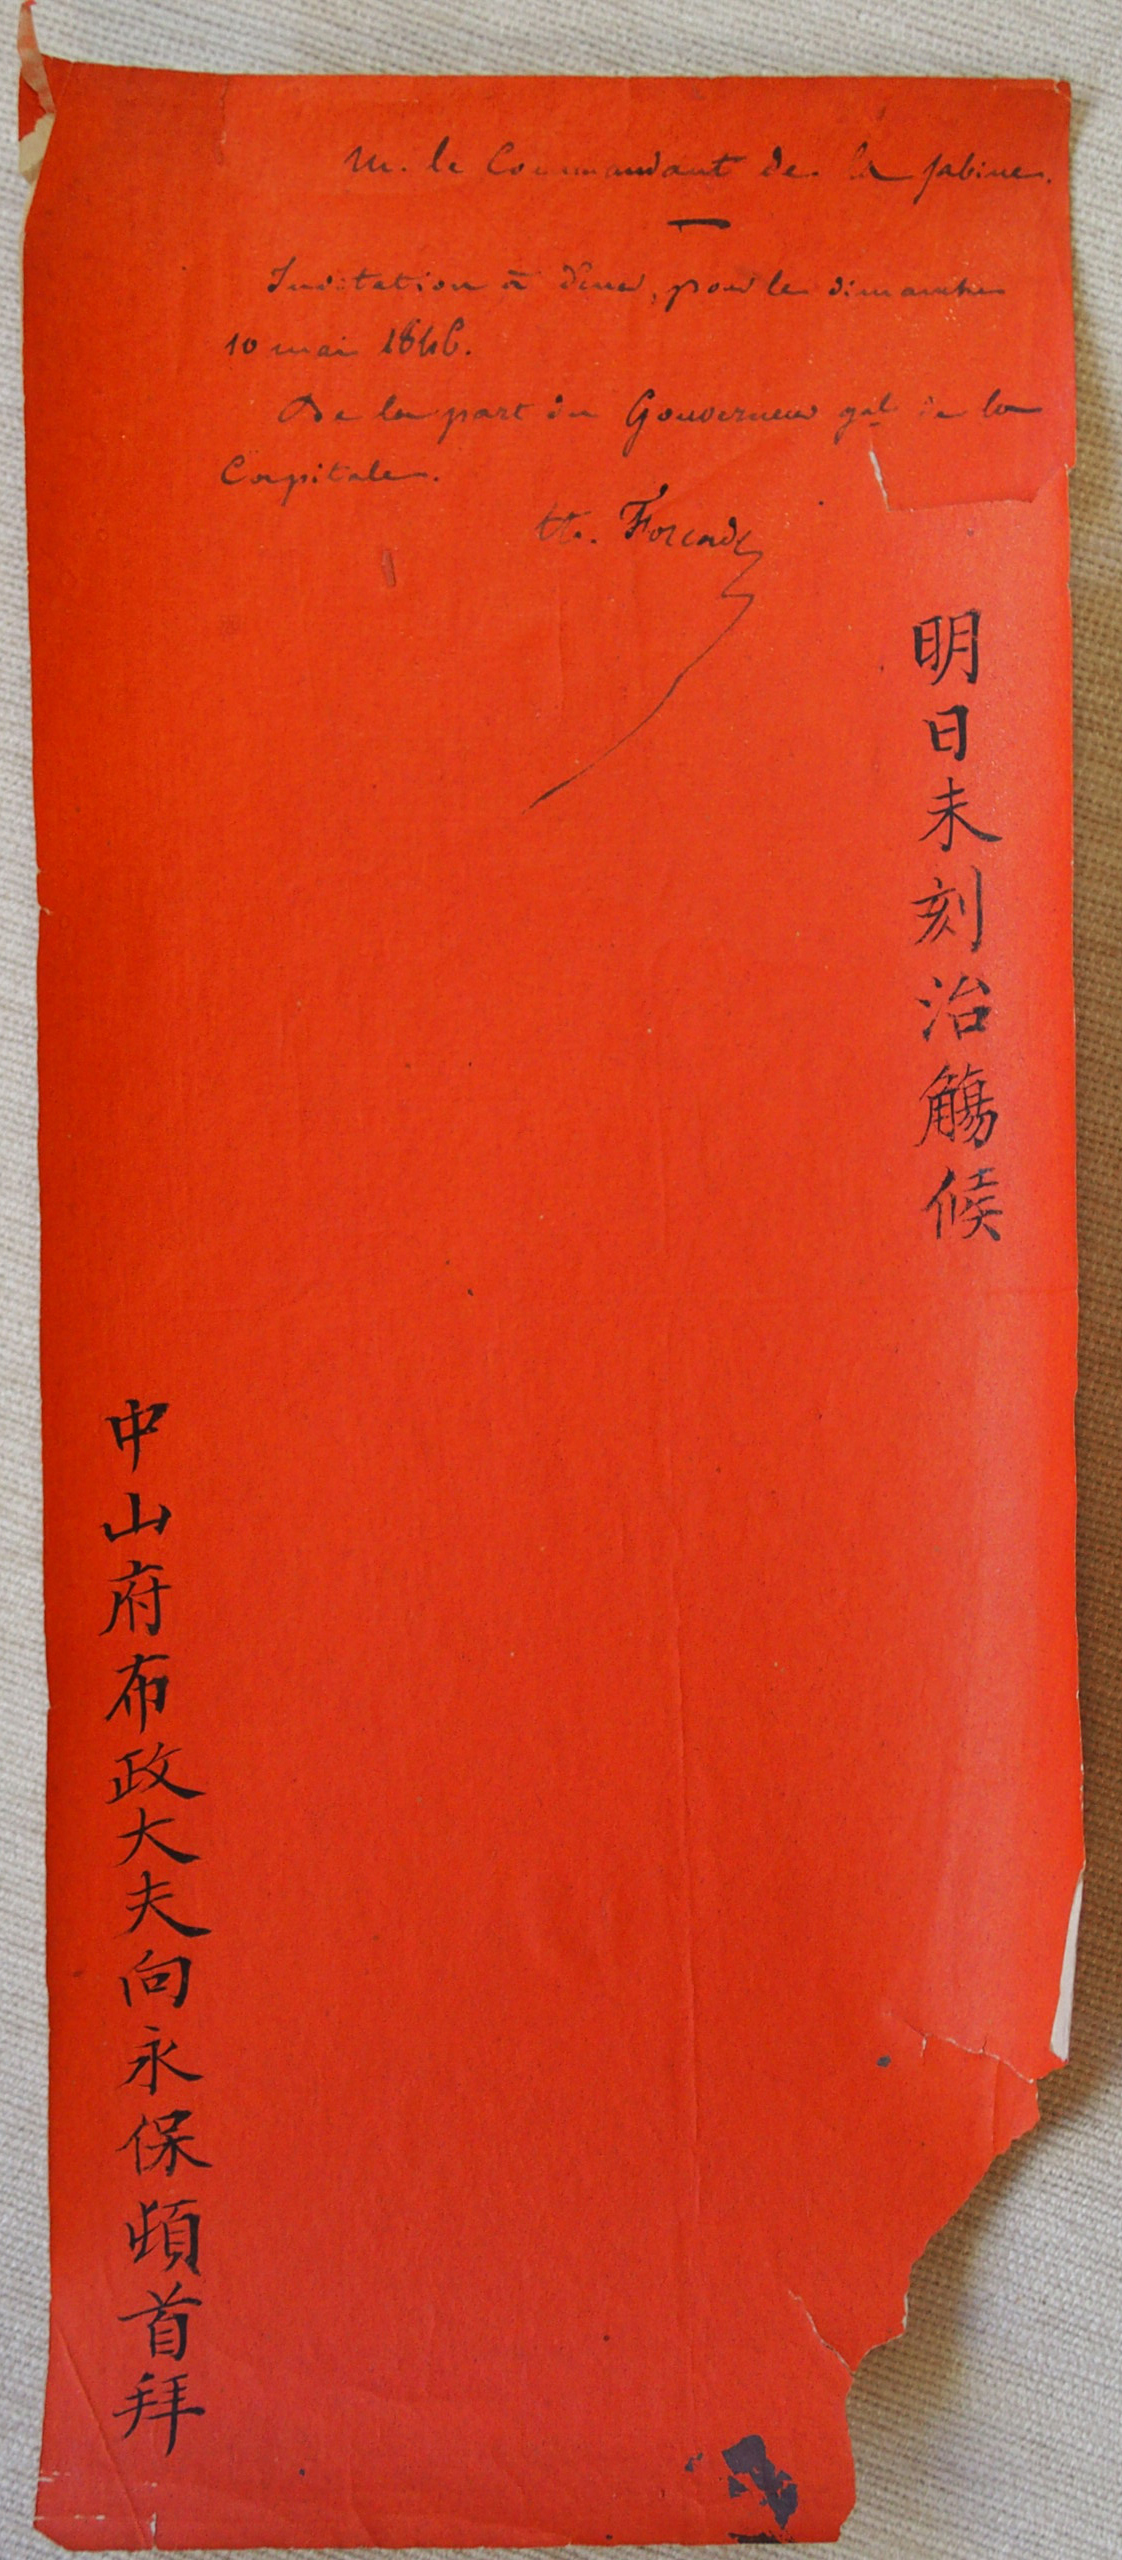 M. le Commandant de la Sabine.
Invitation à diner, pour le dimanche
10 mai 1846.
De la part du Gouverneur gal de la
Capitale.
Forcade
明日未刻治觴候
中山府布政大夫向永保頓首拜